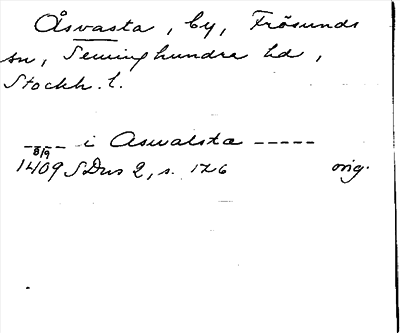 Åsvasta, by, Frösunds
sn, Seminghundra hd,
Stockh. l.
---- i Aswalsta -----
8/9
1409 SDns 2, s. 126 orig.